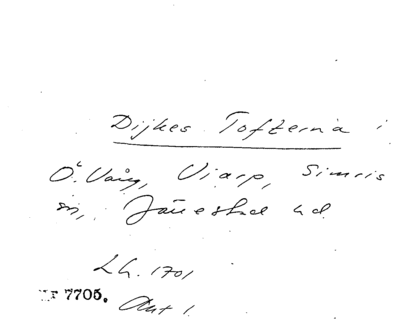 Dijkes Tofterna i
Ö. Vång, Viarp, Simris
sn, Järrestad hd.
Lh. 1701
MF 7705. Akt 1.